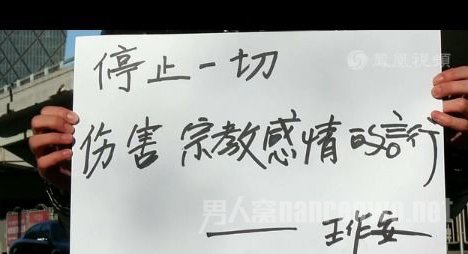 凤凰视频
停止一切
伤害宗教感情的言行
男人窝nanrenwo.net
——王作安